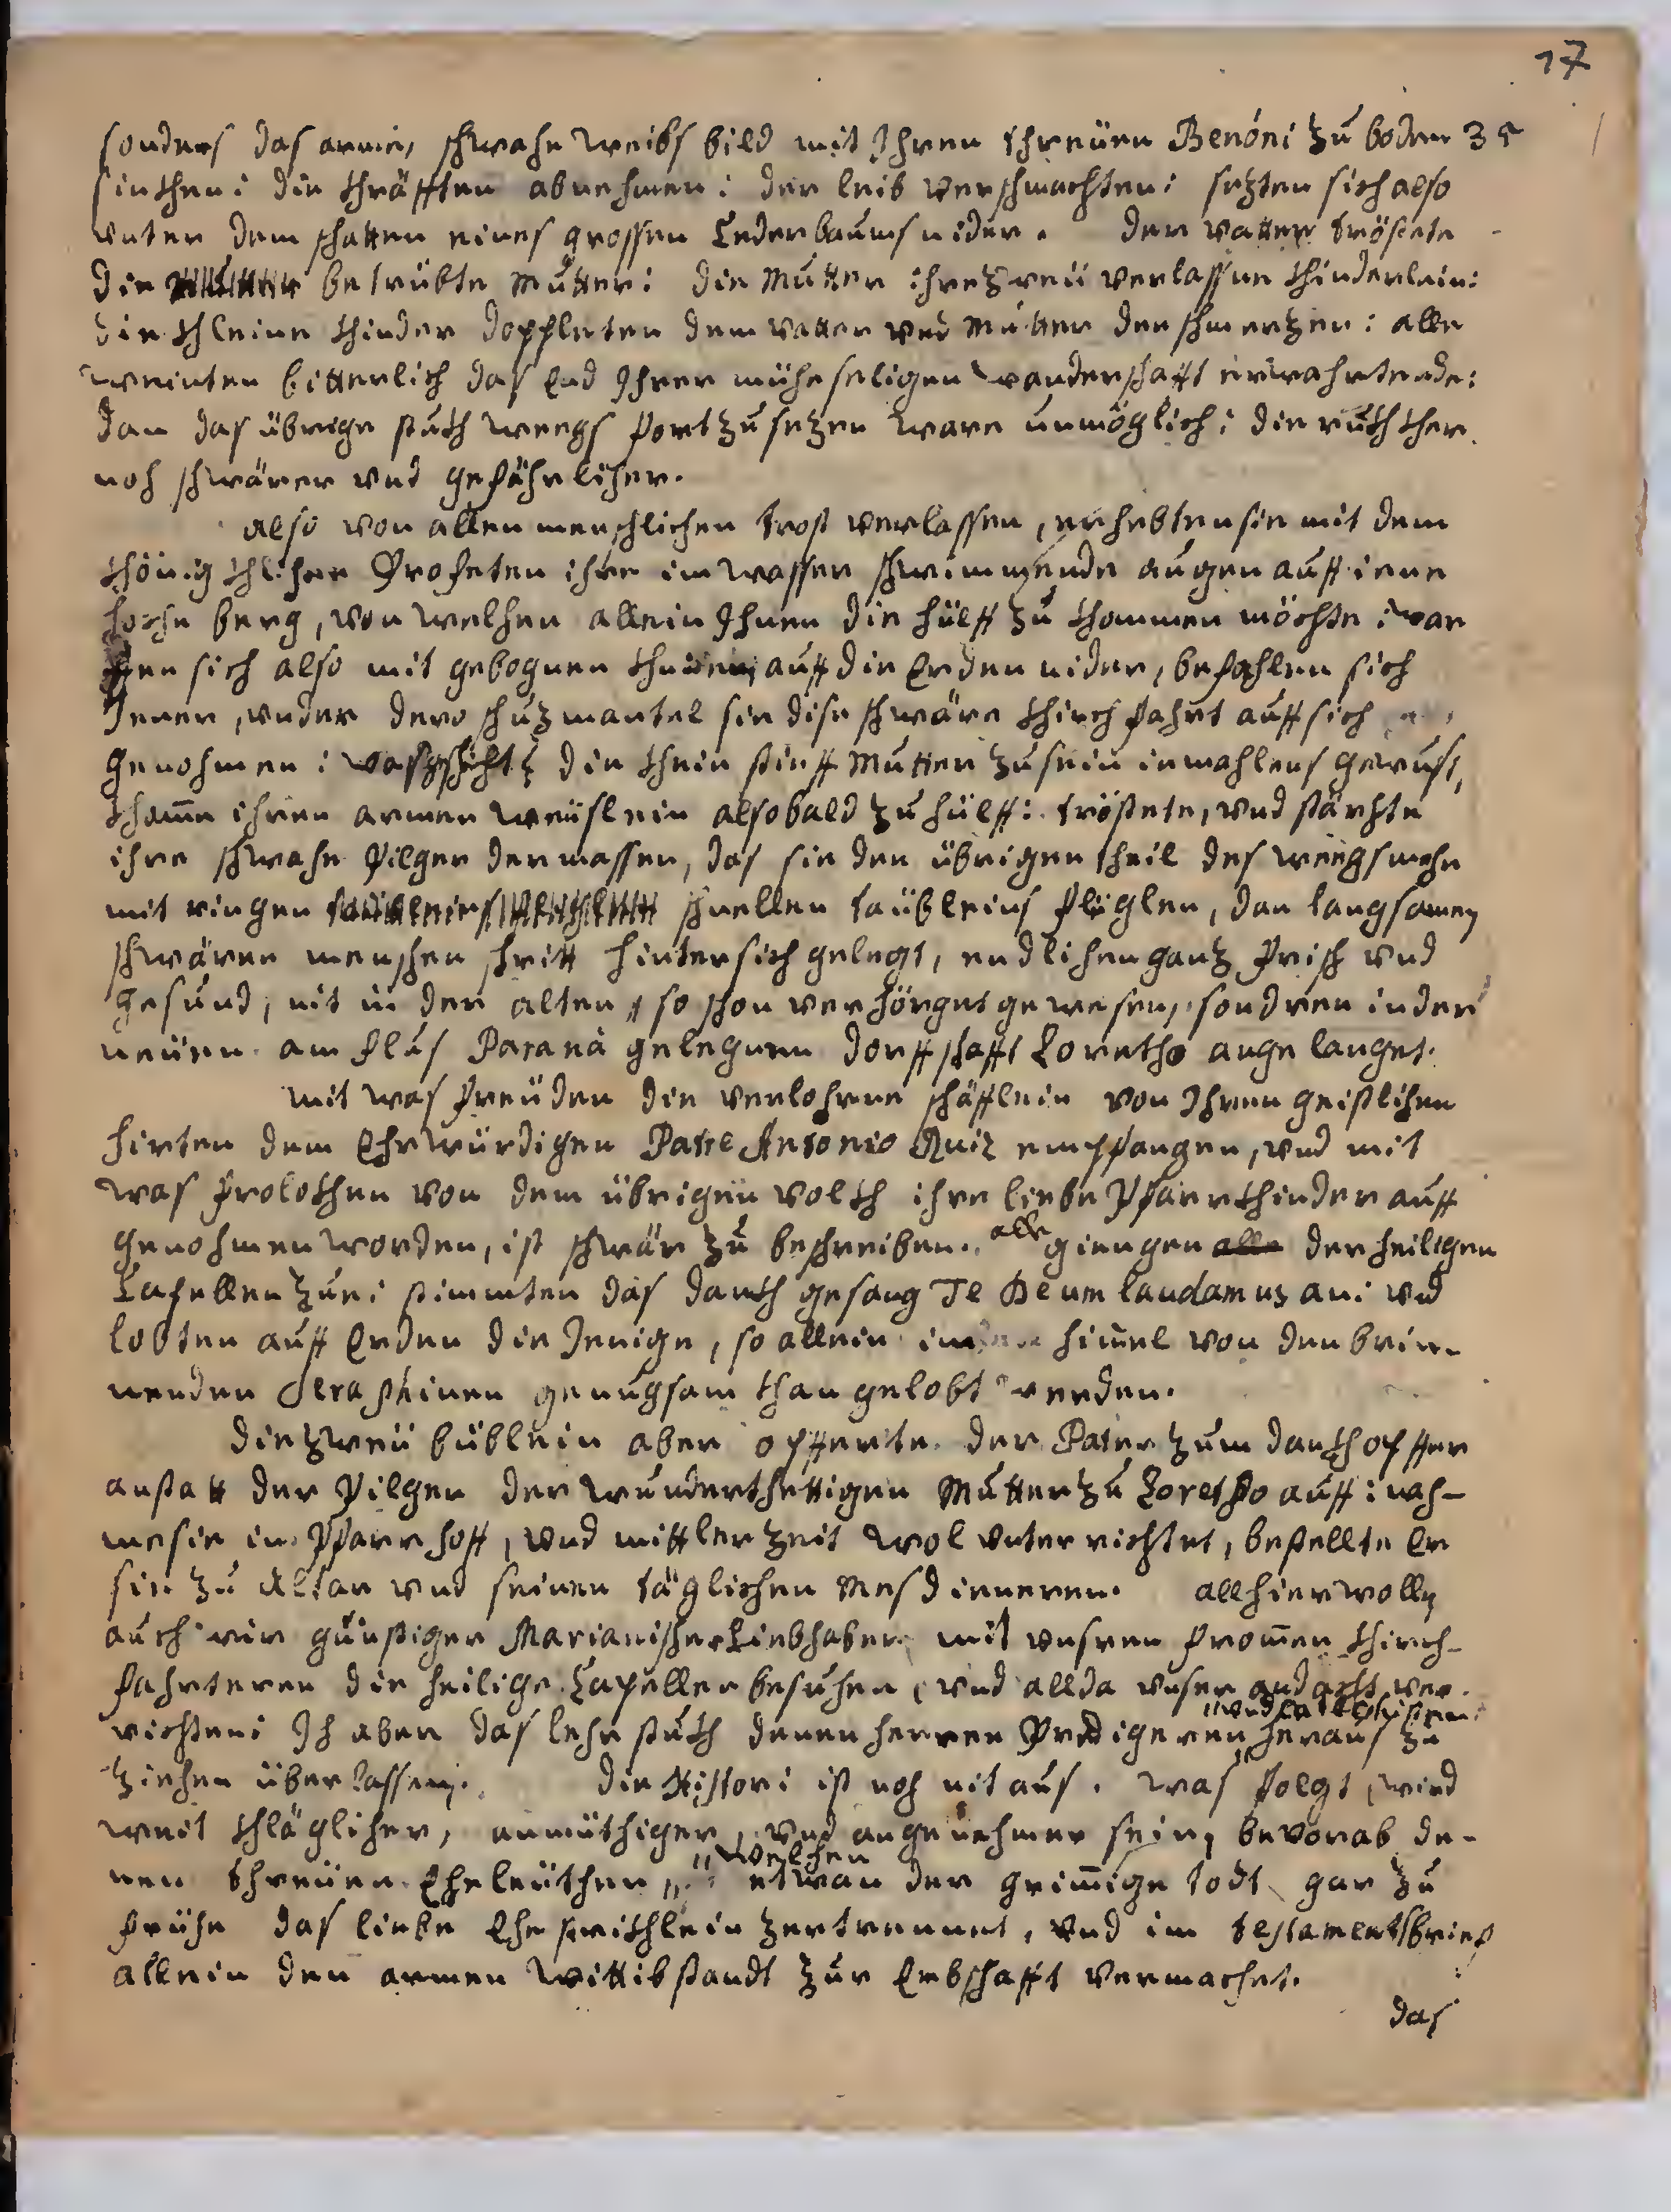 17
sonders das arme, schwahe weibs bild mit Ihren threüen Benóni zu boden 35
sinchen: die chräfften abnehmen: der leib verschmachten: sezten sich also
unter dem schatten eines grossen Cederbaums nider. der vatter tröstete
die betrübte Mutter: die Mutter ihre zweü verlassne chinderlein:
die chleine chinder dopleten dem vatter vnd Mutter den schmerzen: alle
weinten bitterlich das End Ihrer müheseligen wanderschafft erwahrtende:
dan das übrige stuch weegs fortzusezen ware unmöglich: die ruchcher
noh schwärer vnd gefährliher.
also von allen menschlichen trost verlassen, erhebten sie mit dem
chönigchlihen Profeten ihre im wasser schwimmende augen auff iene
hoche berg, von welhen allein Ihnen die hülff zu chommen möchte: war
fen sich also mit gebognen chnüen auff die Erden nider, befahlen sich
Jener, vnder dero schuzmantel sie dise schwäre chirchfahrt auff sich
genohmen: was gschichts die chein stieff Mutter zusein iemahlens gewust,
chame ihren armen weüslein alsobald zu hülff: tröstete, vnd stärchte
ihre schwahe Pilger dermassen, das sie den übrigen theil des weegs mehr
mit ringen schnellen taübleins flüglen, dan langsamen
schwären menschen schritt hintersich gelegt, endlichen ganz frisch vnd
gesund, nit in der alten, so schon verhörget gewesen, sondren in der
neüen am flus Paranà gelegnen dorffschafft Loretho angelanget.
mit was freüden die verlohrne schäfflein von Ihren geistlihen
hirten dem Ehrwürdigen Patre Antonio Ruiz empfangen, vnd mit
was frolochen von dem übrigen volch ihre liebe Pfarrchinder auff
genohmen worden, ist schwär zu beschreiben. alle giengen alle der heiligen
Capellen zue: stimmten das danch gesang Te Deum laudamus an: vnd
lobten auff Erden die Jenige, so allein im himel von den brin-
nenden Seraphinen genugsam chan gelobt werden.
die zweü büblein aber opfferte der Pater zum danchopffer
anstatt der Pilger der wunderthettigen Mutter zu Loretho auff: nah-
me sie in Pfarrhoff, vnd mittlerzeit wol vnterrichtet, bestellte Er
sie zu Altar vnd seinen täglichen Mesdieneren. allhier wollen
auch wir günstiger Marianischer Liebhaber mit vnsren fromen chirch-
fahrteren die heilige Capellen besuhen, vnd allda vnser andacht ver-
richten: Ih aber das lehr stuch denen herren Predigeren vnd Catechisten heraus zu
ziehen überlassen. die Histori ist noh nit aus. was folgt, wird
weit chlägliher, anmüthiger, vnd angenehmer sein, bevorab de-
nen threüen Eheleüthen, welchen etwan der grimige todt gar zu
frühe das liebe Ehe strichlein zertrennet, vnd im testamentsbrief
allein den armen wittibstandt zur Erbschafft vermachet.
das